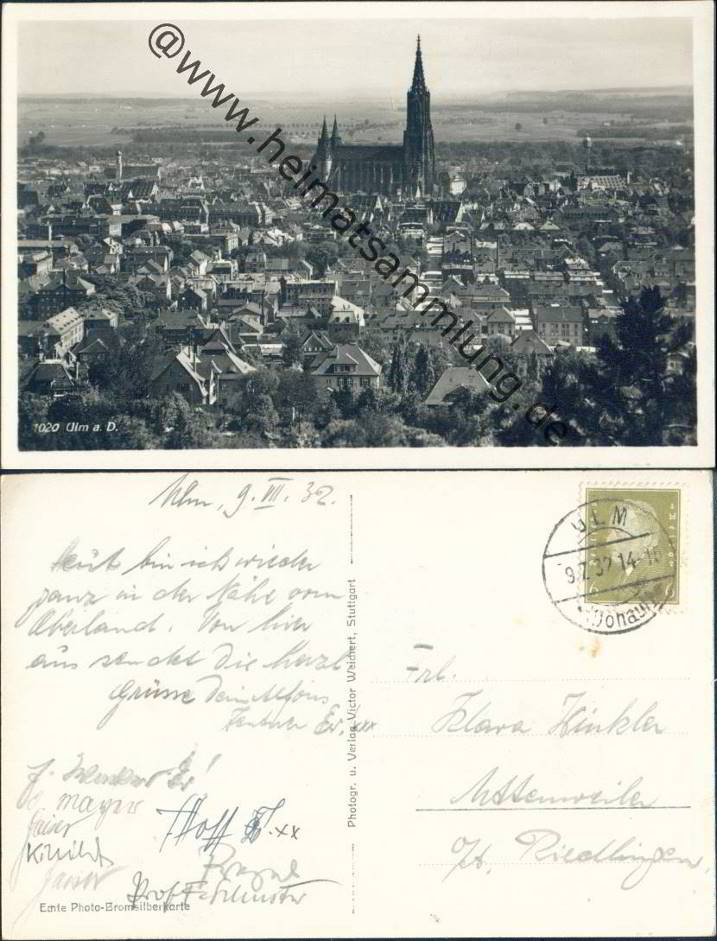 @www.heimatsammlung.de
1020 Ulm a. D.
Ulm, 9. VII. 32.
Heut bin ich wieder
ganz in der Nähe vom
Oberland. Von hier
aus sendet Dir herzl
Grüsse Dein Alfons
Mayer
Hoff
Prof. F. Schuster
Echte Photo-Bromsilberkarte
Photogr. u. Verlag Victor Weichert, Stuttgart
ULM
9.7.32 14-1
(Donau)
Frl.
Klara Hinkler
Uttenweiler
Riedlingen